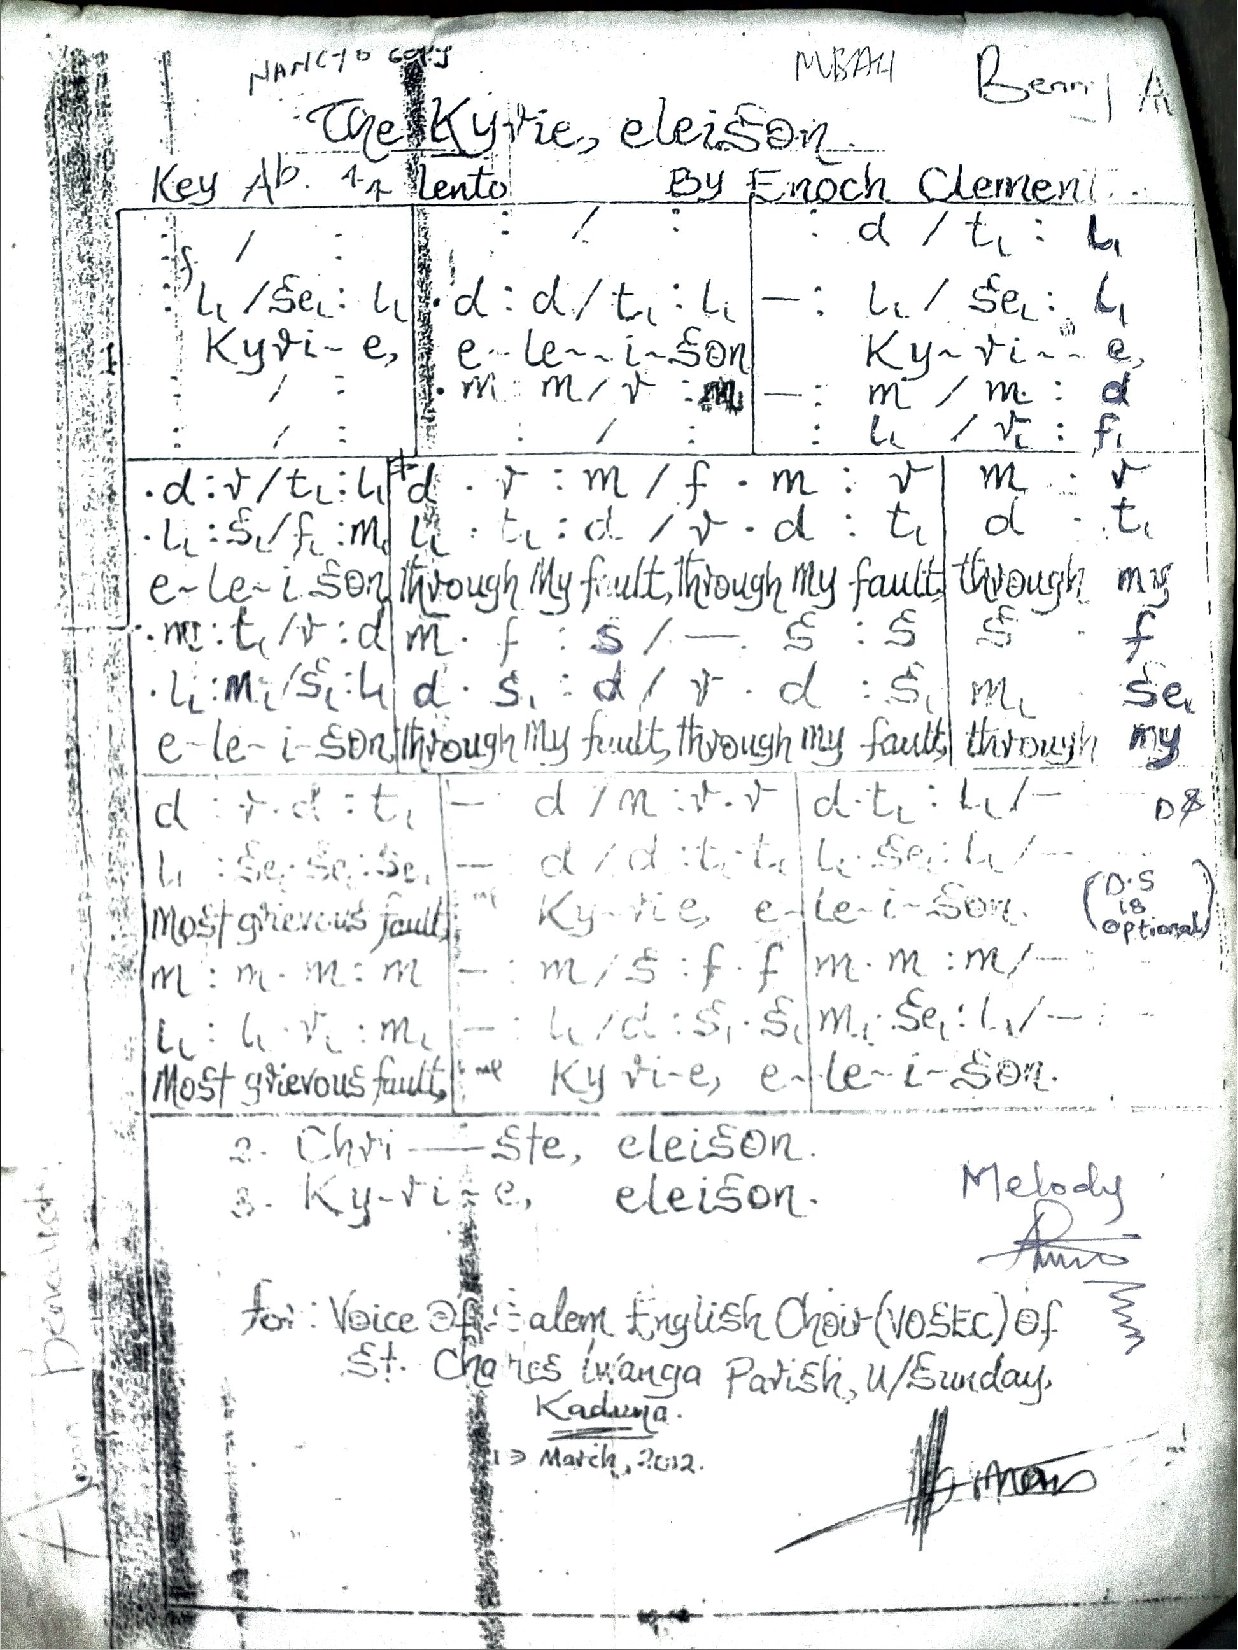 NANCY'S COPY MBAH Benny A
The Kyrie, eleison.
Key Ab. 4/4 lento By Enoch Clement
: / : : / : : d / t₁ : L₁
f
: L₁ / Se₁ : L₁ . d : d / t₁ : L₁ — : L₁ / Se₁ : L₁
Kyri-e, e-le-i-son Ky-ri-e,
: / : . m : m / r : m — : m / m : d
: / : : / : : L₁ / r₁ : f₁
. d : r / t₁ : L₁ d . r : m / f . m : r m . r
. L₁ : S₁ / f₁ : m₁ L₁ . t₁ : d / r . d : t₁ d . t₁
e-le-i-son through My fault, through My fault, through my
. m : t₁ / r : d m . f : s / — . s : s s . f
. L₁ : m₁ / S₁ : L₁ d . s₁ : d / r . d : s₁ m₁ . Se₁
e-le-i-son through My fault, through my fault, through my
d : r . d : t₁ — : d / m : r . r d . t₁ : L₁ / — D.S
L₁ : Se₁ . Se₁ : Se₁ — : d / d : t₁ . t₁ L₁ . Se₁ : L₁ / —
Most grievous fault, Ky-rie, e-le-i-son. (D.S is optional)
m : m . m : m — : m / s : f . f m . m : m / —
L₁ : L₁ . r₁ : m₁ — : L₁ / d : s₁ . s₁ m₁ . Se₁ : L₁ / —
Most grievous fault, Kyri-e, e-le-i-son.
2. Chri——ste, eleison.
3. Ky-ri-e, eleison.
Melody
for: Voice Of Salem English Choir (VOSEC) Of
St. Charles Lwanga Parish, U/Sunday,
Kaduna.
March, 2012.